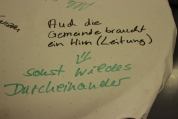 Auch die
Gemeinde braucht
ein Hirn (Leitung)
sonst wildes
Durcheinander